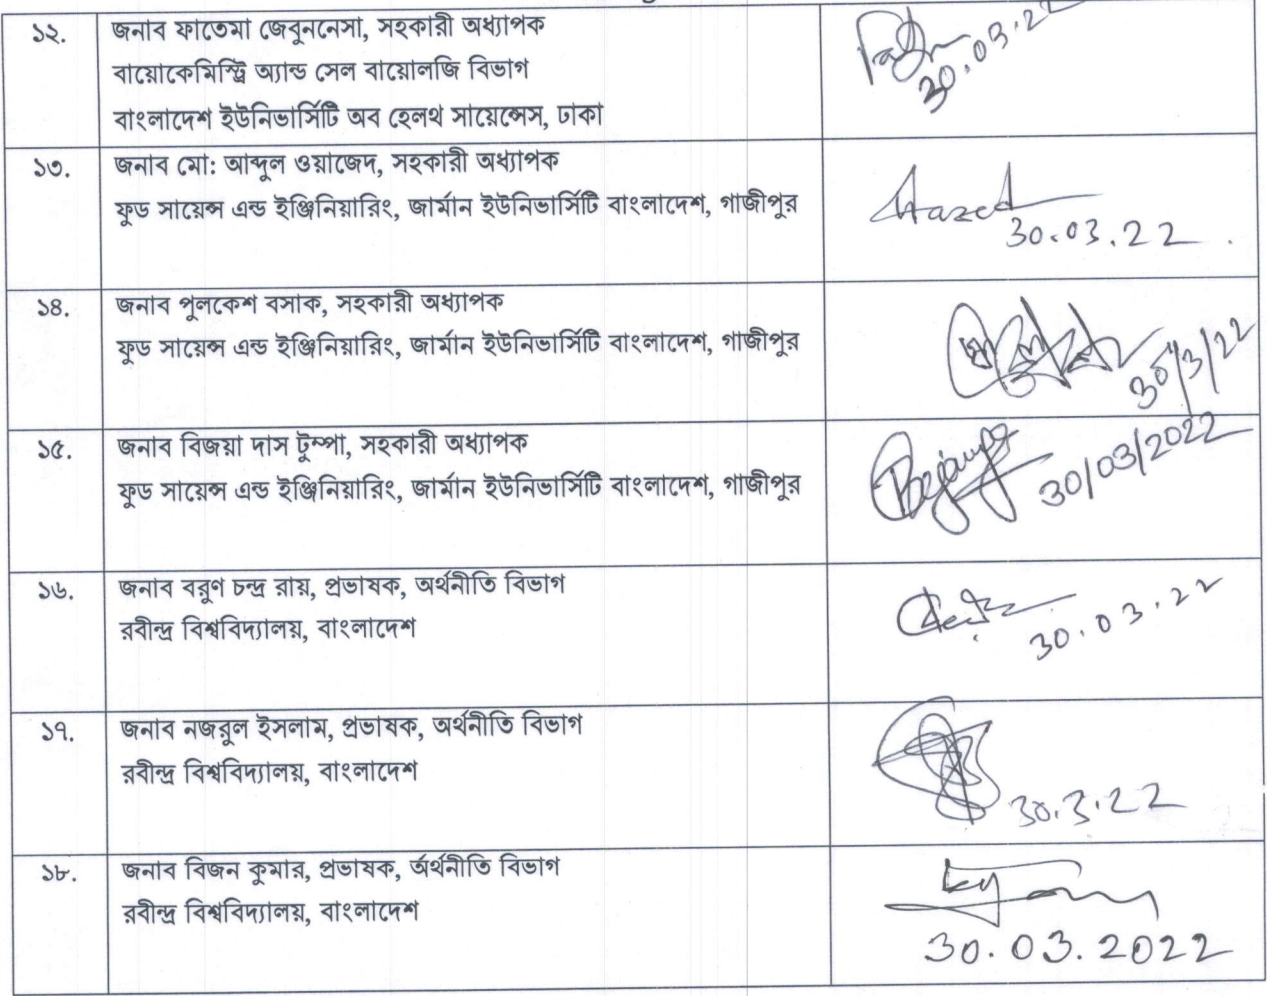 ১২.
জনাব ফাতেমা জেবুননেসা, সহকারী অধ্যাপক
বায়োকেমিস্ট্রি অ্যান্ড সেল বায়োলজি বিভাগ
বাংলাদেশ ইউনিভার্সিটি অব হেলথ সায়েন্সেস, ঢাকা
30.03.22
১৩.
জনাব মো: আব্দুল ওয়াজেদ, সহকারী অধ্যাপক
ফুড সায়েন্স এন্ড ইঞ্জিনিয়ারিং, জার্মান ইউনিভার্সিটি বাংলাদেশ, গাজীপুর
30.03.22
১৪.
জনাব পুলকেশ বসাক, সহকারী অধ্যাপক
ফুড সায়েন্স এন্ড ইঞ্জিনিয়ারিং, জার্মান ইউনিভার্সিটি বাংলাদেশ, গাজীপুর
30/3/22
১৫.
জনাব বিজয়া দাস টুম্পা, সহকারী অধ্যাপক
ফুড সায়েন্স এন্ড ইঞ্জিনিয়ারিং, জার্মান ইউনিভার্সিটি বাংলাদেশ, গাজীপুর
30/03/2022
১৬.
জনাব বরুণ চন্দ্র রায়, প্রভাষক, অর্থনীতি বিভাগ
রবীন্দ্র বিশ্ববিদ্যালয়, বাংলাদেশ
30.03.22
১৭.
জনাব নজরুল ইসলাম, প্রভাষক, অর্থনীতি বিভাগ
রবীন্দ্র বিশ্ববিদ্যালয়, বাংলাদেশ
30.3.22
১৮.
জনাব বিজন কুমার, প্রভাষক, র্অথনীতি বিভাগ
রবীন্দ্র বিশ্ববিদ্যালয়, বাংলাদেশ
30.03.2022